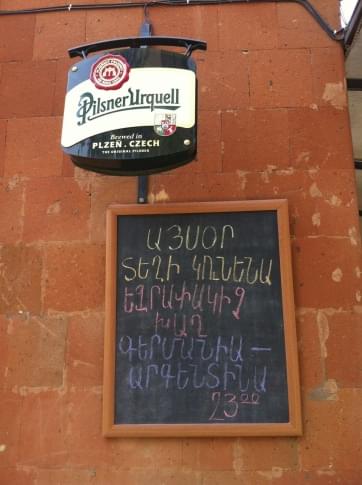 Pilsner Urquell
Brewed in
PLZEŇ, CZECH
THE ORIGINAL PILSNER
ԱՅՍՕՐ
ՏԵՂԻ ԿՈՒՆԵՆԱ
ԵԶՐԱՓԱԿԻՉ
ԽԱՂ
ԳԵՐՄԱՆԻԱ —
ԱՐԳԵՆՏԻՆԱ
23 00